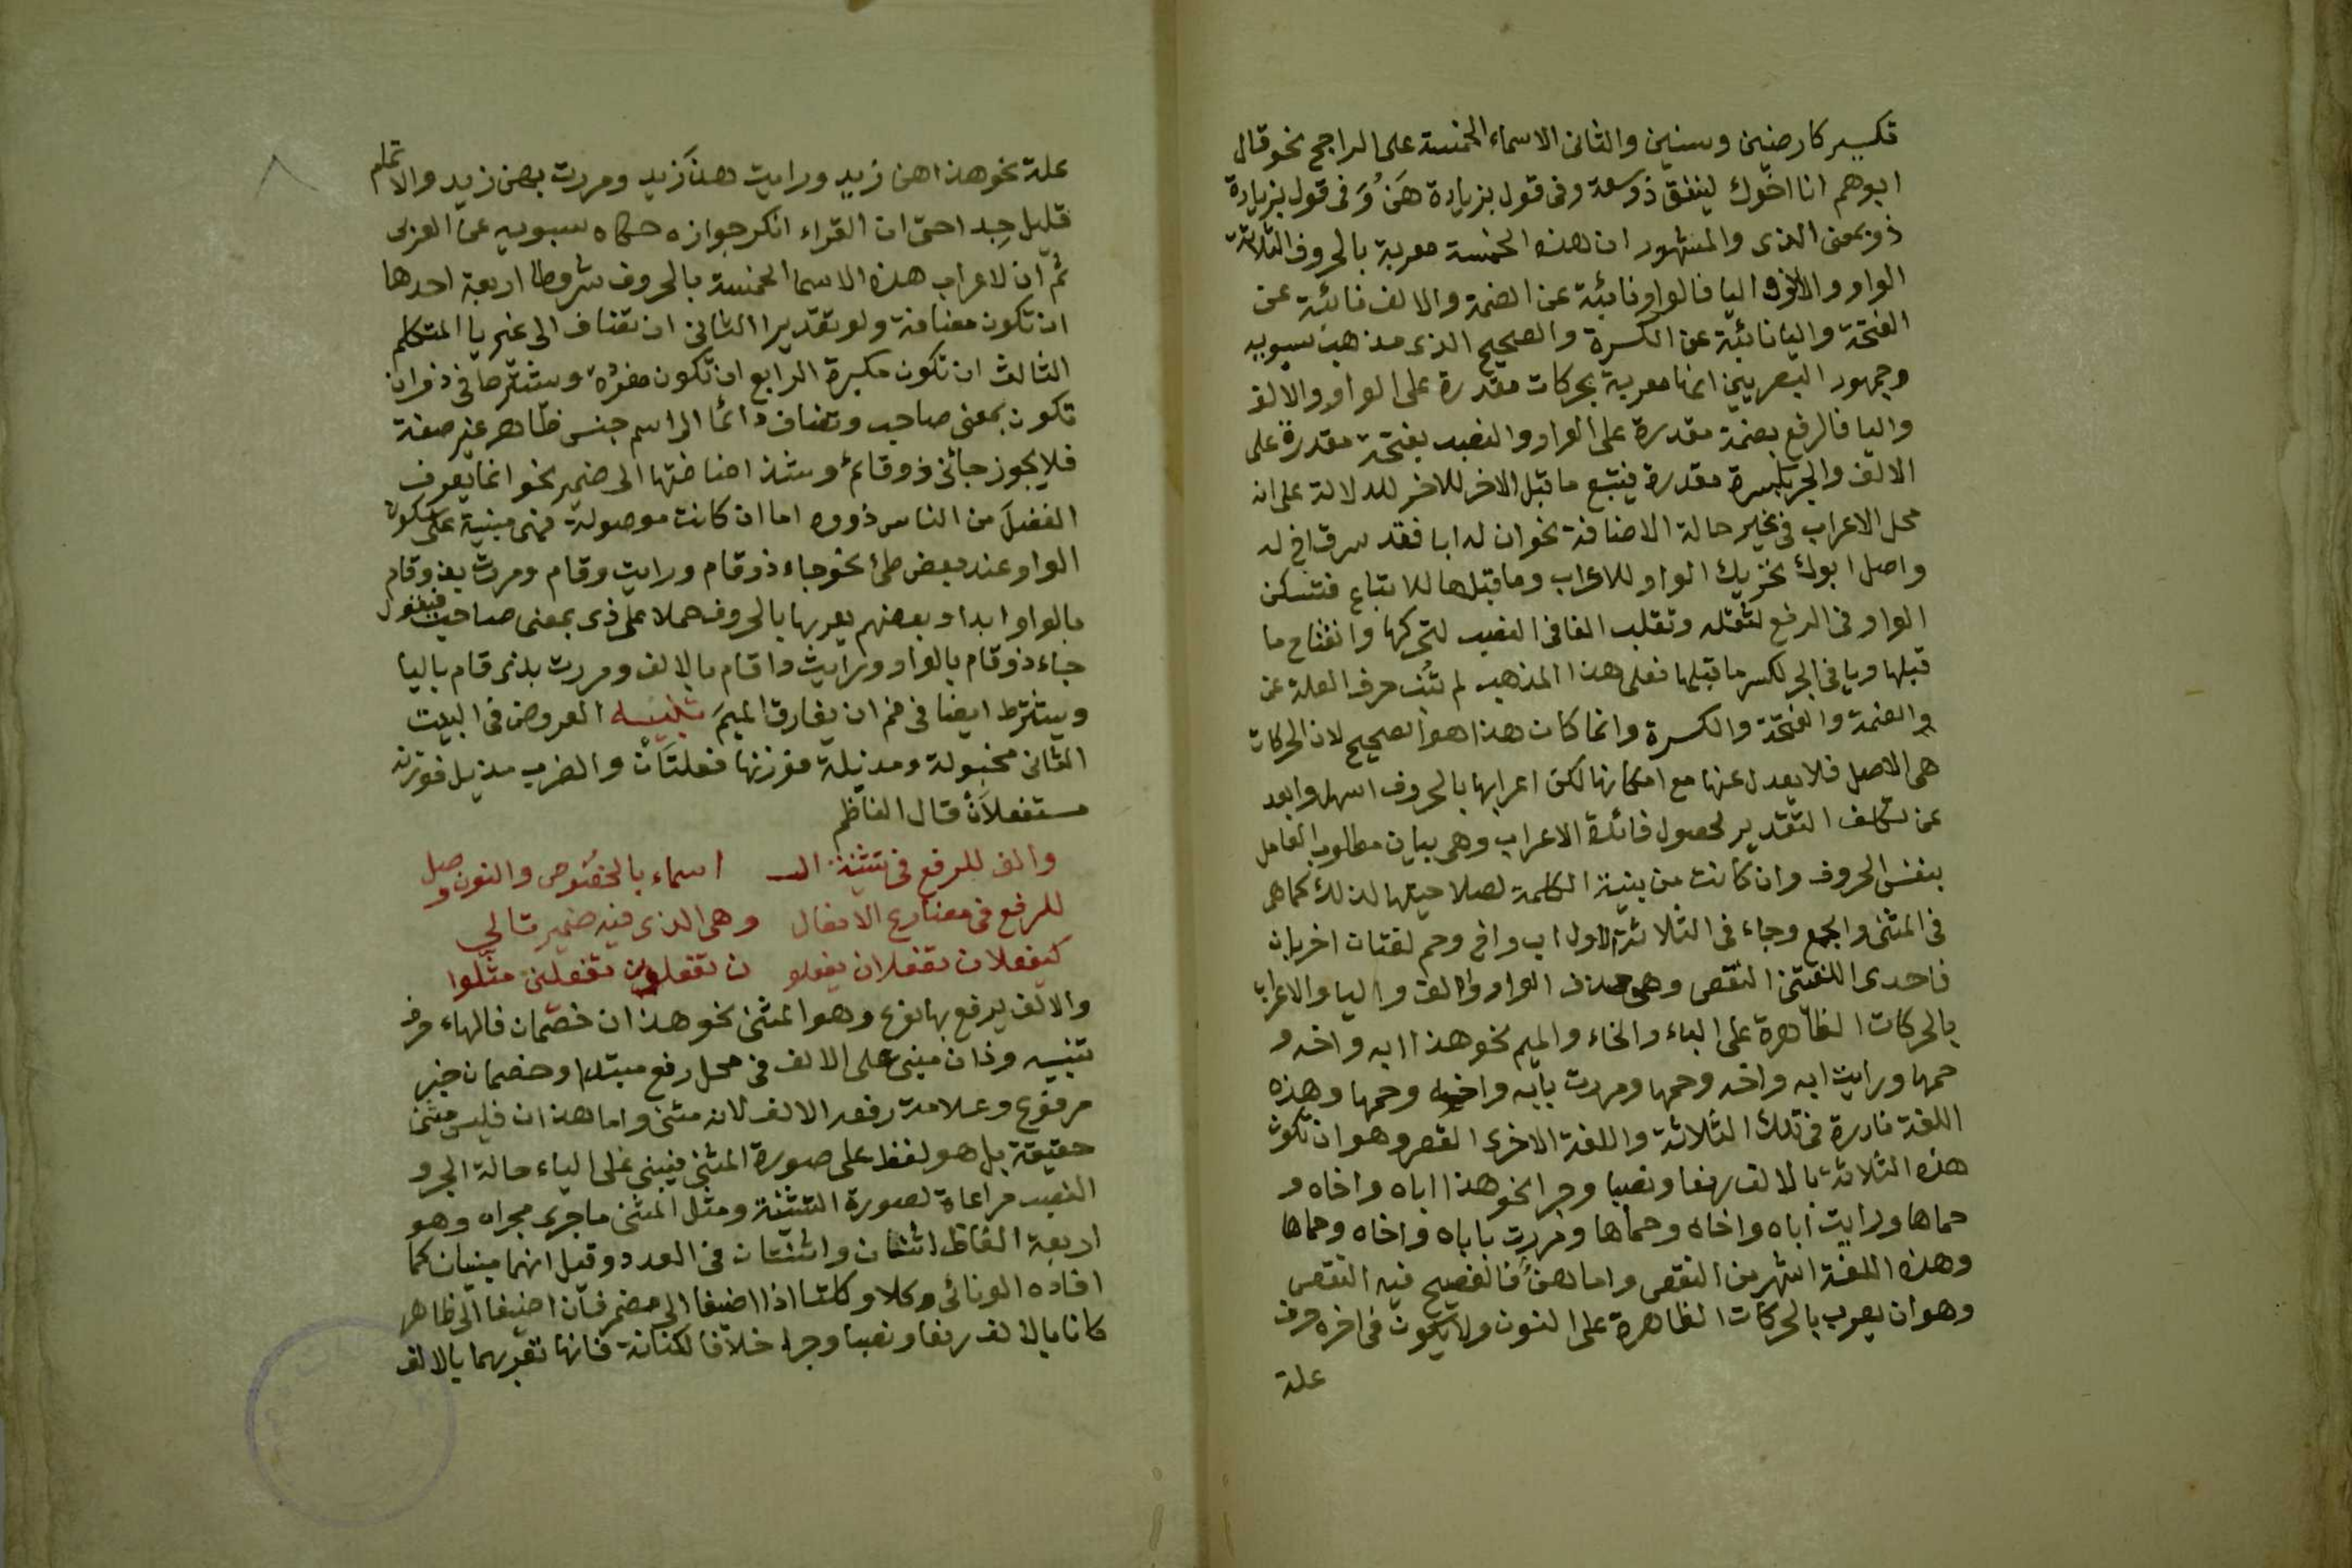 تكسير كارضين وسنين والثانى الاسماء الخمسة على الراجح نحو قال
ابوهم انا اخوك لينفق ذو سعة وفى قول بزيادة هَنُ وَفى قول بزيادة
ذو بمعنى الذى والمشهور ان هذه الخمسة معربة بالحروف الثلاثة
الواو والالف واليا فالواو نائبة عن الضمة والالف نائبة عن
الفتحة واليا نائبة عن الكسرة والصحيح الذى مذهب سيبويه
وجمهور البصريين انها معربة بحركات مقدرة على الواو والالف
واليا فالرفع بضمة مقدرة على الواو والنصب بفتحة مقدرة على
الالف والجر بكسرة مقدرة فيتبع ما قبل الاخر للاخر للدلالة على انه
محل الاعراب فى غير حالة الاضافة نحو ان له ابا فقد سرق اخ له
واصل ابوك بتحريك الواو للاعراب وما قبلها للاتباع فتسكن
الواو فى الرفع لثقله وتقلب الفا فى النصب لتحركها وانفتاح ما
قبلها ويا فى الجر لكسر ما قبلها فعلى هذا المذهب لم تنب حرف العلة عن
والضمة والفتحة والكسرة وانما كان هذا هو الصحيح لان الحركات
هى الاصل فلا يعدل عنها مع امكانها لكن اعرابها بالحروف اسهل وابعد
عن تكلف التقدير لحصول فائدة الاعراب وهى بيان مطلوب العامل
بنفس الحروف وان كانت من بنية الكلمة لصلاحيتها لذلك كما هى
فى المثنى والجمع وجاء فى الثلاثة الاول اب واخ وحم لغتان اخريان
فاحدى اللغتين النقص وهى حذف الواو والالف واليا والاعراب
بالحركات الظاهرة على الباء والخاء والميم نحو هذا ابه واخه و
حمها ورايت ابه واخه وحمها ومررت بابه واخه وحمها وهذه
اللغة نادرة فى تلك الثلاثة واللغة الاخرى القصر وهو ان تكون
هذه الثلاثة بالالف رفعا ونصبا وجرا نحو هذا اباه واخاه و
حماها ورايت اباه واخاه وحماها ومررت باباه واخاه وحماها
وهذه اللغة اشهر من النقص واما هنٌ فالفصيح فيه النقص
وهو ان يعرب بالحركات الظاهرة على النون ولا يكون فى اخره حرف
علة
علة نحو هذا هن زيد ورايت هنَ زيد ومررت بهن زيد والاتمام
قليل جدا حتى ان الفراء انكر جوازه حكاه سيبويه عن العرب
ثم ان لاعراب هذه الاسما الخمسة بالحروف شروطا اربعة احدها
ان تكون مضافة ولو تقديرا الثانى ان تضاف الى غير يا المتكلم
الثالث ان تكون مكبرة الرابع ان تكون مفردة ويشترط فى ذو ان
تكون بمعنى صاحب وتضاف دائما الى اسم جنس ظاهر غير صفة
فلا يجوز جائنى ذو قائم وشذ اضافتها الى ضمير نحو انما يعرف
الفضلَ من الناس ذووه اما ان كانت موصولة فهى مبنية على سكون
الواو عند بعض طىء نحو جاء ذو قام ورايت وقام ومررت بذو قام
بالواو ابدا وبعضهم يعربها بالحروف حملا على ذى بمعنى صاحب فيقول
جاء ذو قام بالواو ورايت ذا قام بالالف ومررت بذى قام باليا
ويشترط ايضا فى فم ان يفارق الميمَ تنبيه العروض فى البيت
الثانى مخبولة ومذيلة فوزنها فعلتَانْ والضرب مذيل فوزنه
مستفعلاَنْ قال الناظم
والف للرفع فى تثنية الـ اسماء بالخصوص والنون وصل
للرفع فى مضارع الافعال وهى الذى فيه ضمير تالى
كيفعلان تفعلان يفعلو ن تفعلون تفعلين مثلوا
والالف يرفع بها نوع وهو المثنى نحو هذان خصمان فالهاء حرف
تنبيه وذان مبنى على الالف فى محل رفع مبتدا وخصمان خبر
مرفوع وعلامة رفعه الالف لانه مثنى واما هذان فليس مثنى
حقيقة بل هو لفظ على صورة المثنى فيبنى على الياء حالة الجر و
النصب مراعاة لصورة التثنية ومثل المثنى ما جرى مجراه وهو
اربعة الفاظ اثنان واثنتان فى العدد وقيل انهما مبنيان كما
افاده الونائى وكلا وكلتا اذا اضيفا الى مضمر فان اضيفا الى ظاهر
كانا بالالف رفعا ونصبا وجرا خلافا لكنانة فانها تعربهما بالالف